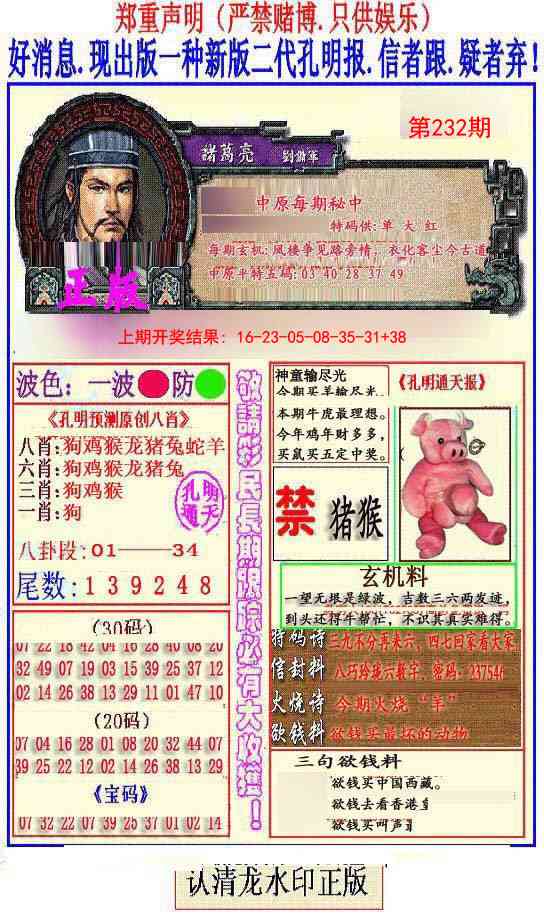 郑重声明（严禁赌博.只供娱乐）
好消息.现出版一种新版二代孔明报.信者跟.疑者弃！
第232期
諸葛亮
中原每期秘中
特码供:单 大 红
每期玄机:凤楼争见路旁情，衣化客尘今古道
中原平特五码:03 40 28 37 49
正版
上期开奖结果：16-23-05-08-35-31+38
波色：一波 防
《孔明预测原创八肖》
八肖:狗鸡猴龙猪兔蛇羊
六肖:狗鸡猴龙猪兔
三肖:狗鸡猴
一肖:狗
孔明
通天
八卦段:01——34
尾数:139248
(30码)
07 22 18 42 04 16 28 40 08 20
32 49 07 19 03 13 35 25 37 12
02 14 26 38 13 29 11 01 47 10
(20码)
07 04 16 28 01 08 20 32 44 07
39 25 22 12 02 14 26 38 13 29
《宝码》
07 32 22 07 39 25 37 01 02 14
敬請彩民長期跟踪必有大收獲！
神童输尽光
今期买羊输尽光
本期牛虎最理想。
今年鸡年财多多，
买鼠买五定中奖。
《孔明通天报》
禁 猪猴
玄机料
一望无垠是绿波，吉数三六两发迹，
到头还得牛帮忙，不识其真实难得。
特码诗 三九不分再来六，四七回家看大家
信封料 八巧玲珑六数字，密码：237546
火烧诗 今期火烧“羊”
欲钱料 欲钱买最坏的动物
三句欲钱料
欲钱买中国西藏。
欲钱去看香港
欲钱买叫声
认清龙水印正版